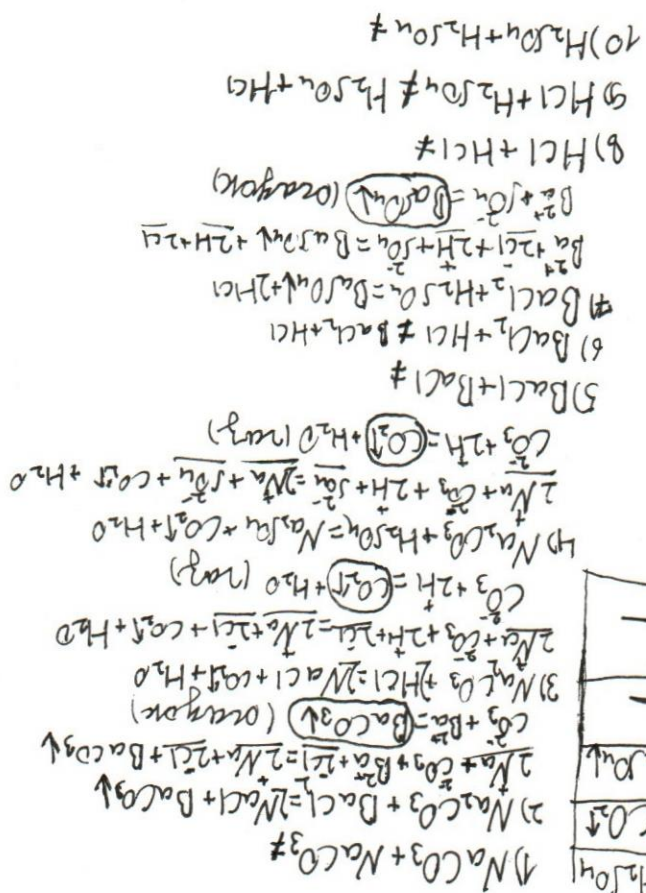 1) NaCO₃ + NaCO₃ ≠
2) Na₂CO₃ + BaCl₂ = 2NaCl + BaCO₃↓
2Na⁺ + CO₃²⁻ + Ba²⁺ + 2Cl⁻ = 2Na⁺ + 2Cl⁻ + BaCO₃↓
CO₃²⁻ + Ba²⁺ = BaCO₃↓ (осадок)
3) Na₂CO₃ + 2HCl = 2NaCl + CO₂↑ + H₂O
2Na⁺ + CO₃²⁻ + 2H⁺ + 2Cl⁻ = 2Na⁺ + 2Cl⁻ + CO₂↑ + H₂O
CO₃²⁻ + 2H⁺ = CO₂↑ + H₂O (газ)
4) Na₂CO₃ + H₂SO₄ = Na₂SO₄ + CO₂↑ + H₂O
2Na⁺ + CO₃²⁻ + 2H⁺ + SO₄²⁻ = 2Na⁺ + SO₄²⁻ + CO₂↑ + H₂O
CO₃²⁻ + 2H⁺ = CO₂↑ + H₂O (газ)
5) BaCl + BaCl ≠
6) BaCl₂ + HCl ≠ BaCl₂ + HCl
7) BaCl₂ + H₂SO₄ = BaSO₄↓ + 2HCl
Ba²⁺ + 2Cl⁻ + 2H⁺ + SO₄²⁻ = BaSO₄↓ + 2H⁺ + 2Cl⁻
Ba²⁺ + SO₄²⁻ = BaSO₄↓ (осадок)
8) HCl + HCl ≠
9) HCl + H₂SO₄ ≠ H₂SO₄ + HCl
10) H₂SO₄ + H₂SO₄ ≠
H₂SO₄
CO₂↑
SO₄↓
—
—